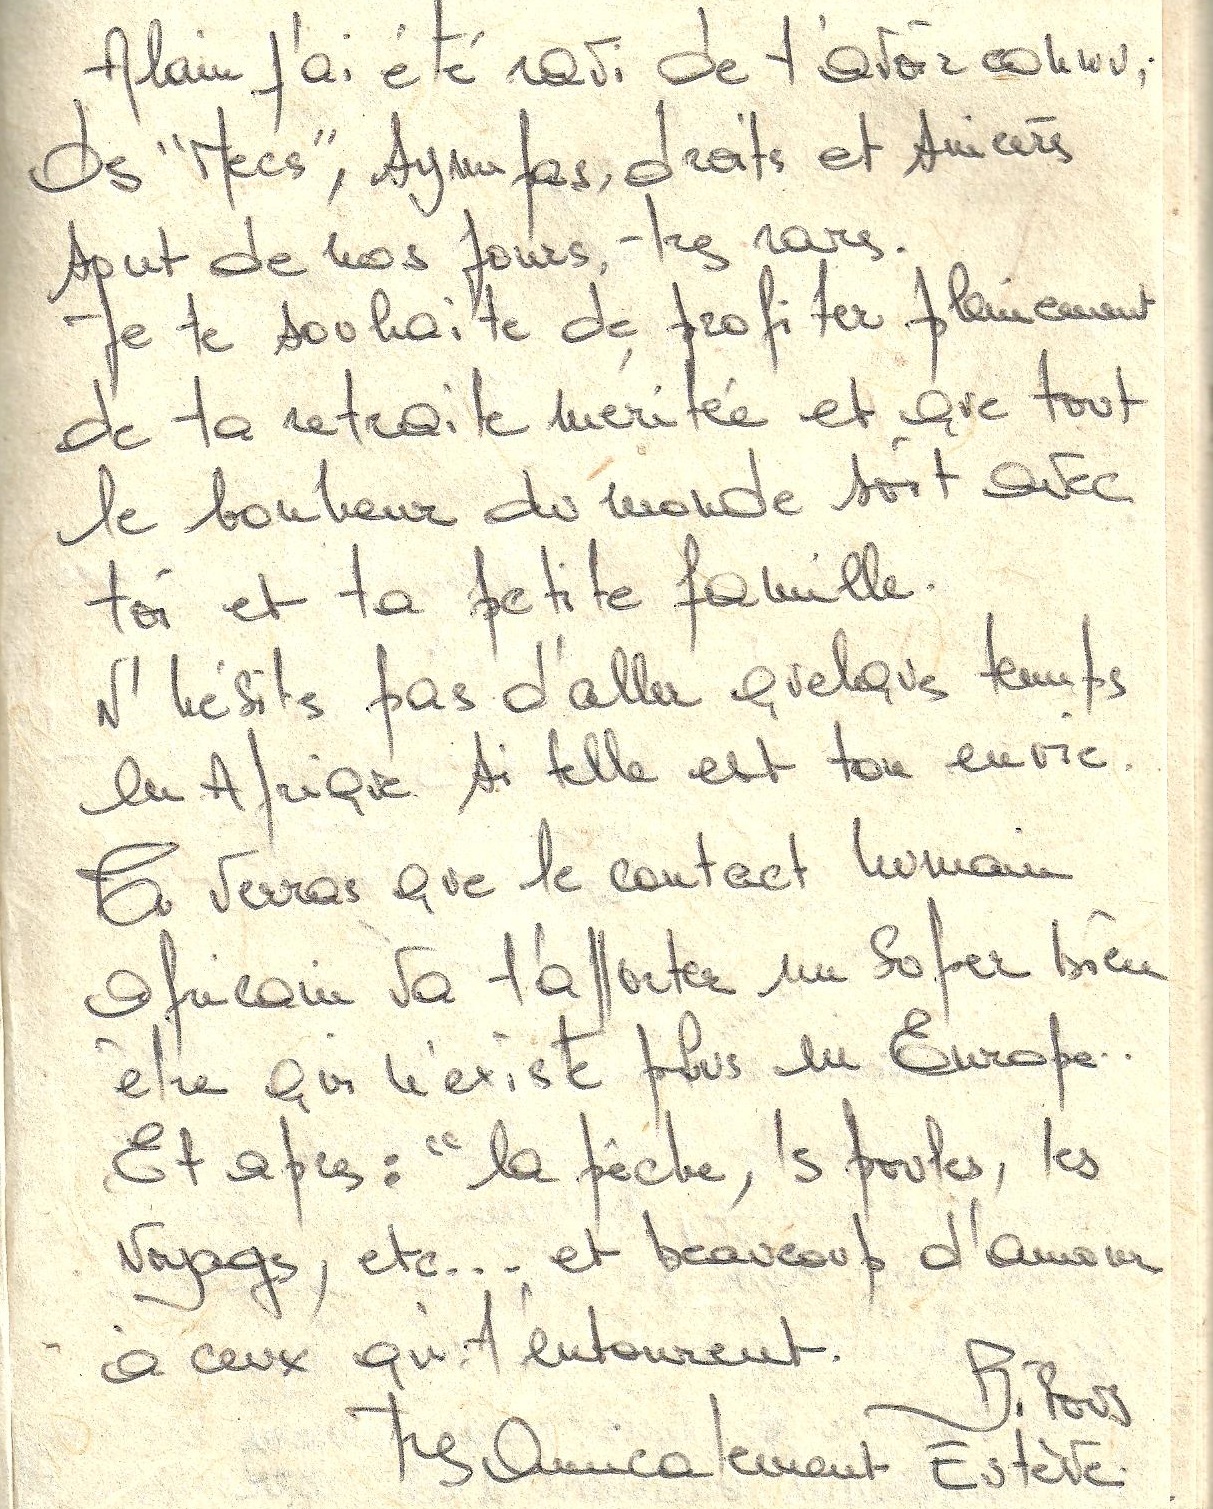 Alain j'ai été ravi de t'avoir connu,
Des "Mecs", sympas, droits et sincères
sont de nos jours, très rares.
Je te souhaite de profiter pleinement
de ta retraite méritée et que tout
le bonheur du monde soit avec
toi et ta petite famille.
N'hésites pas d'aller quelques temps
en Afrique si telle est ton envie.
Tu verras que le contact humain
africain va t'apporter un super bien
être qui n'existe plus en Europe..
Et apres : "la pêche, ls poules, les
voyages, etc..., et beaucoup d'amour
à ceux qui t'entourent.
Bisous
Très Amicalement Estève.